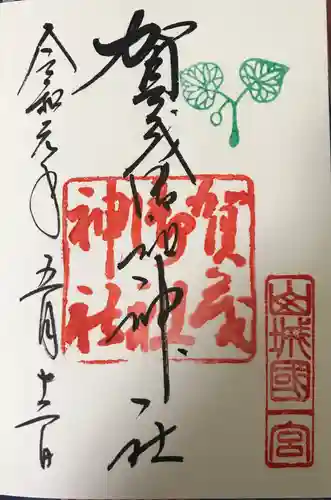 賀茂御祖神社
令和元年五月十二日
賀茂
御祖
神社
山城國一宮